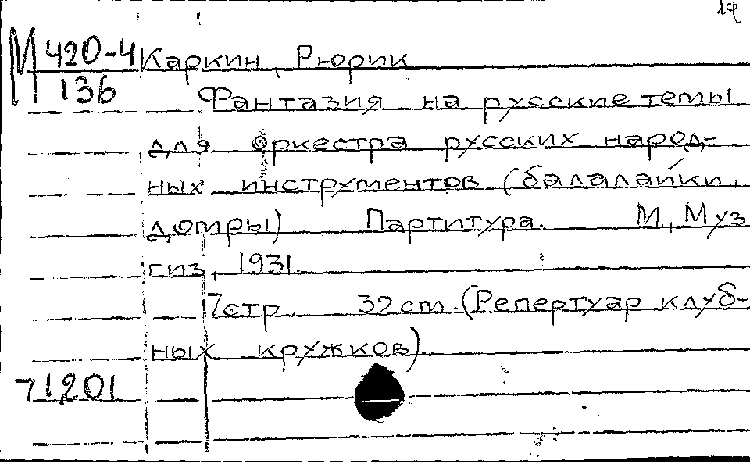 М 420-4 Каркин, Рюрик
136 Фантазия на русские темы
для оркестра русских народ-
ных инструментов (балалайки,
домры) Партитура. М, Муз
гиз, 1931.
7стр 32cm (Репертуар клуб-
ных кружков)
71201